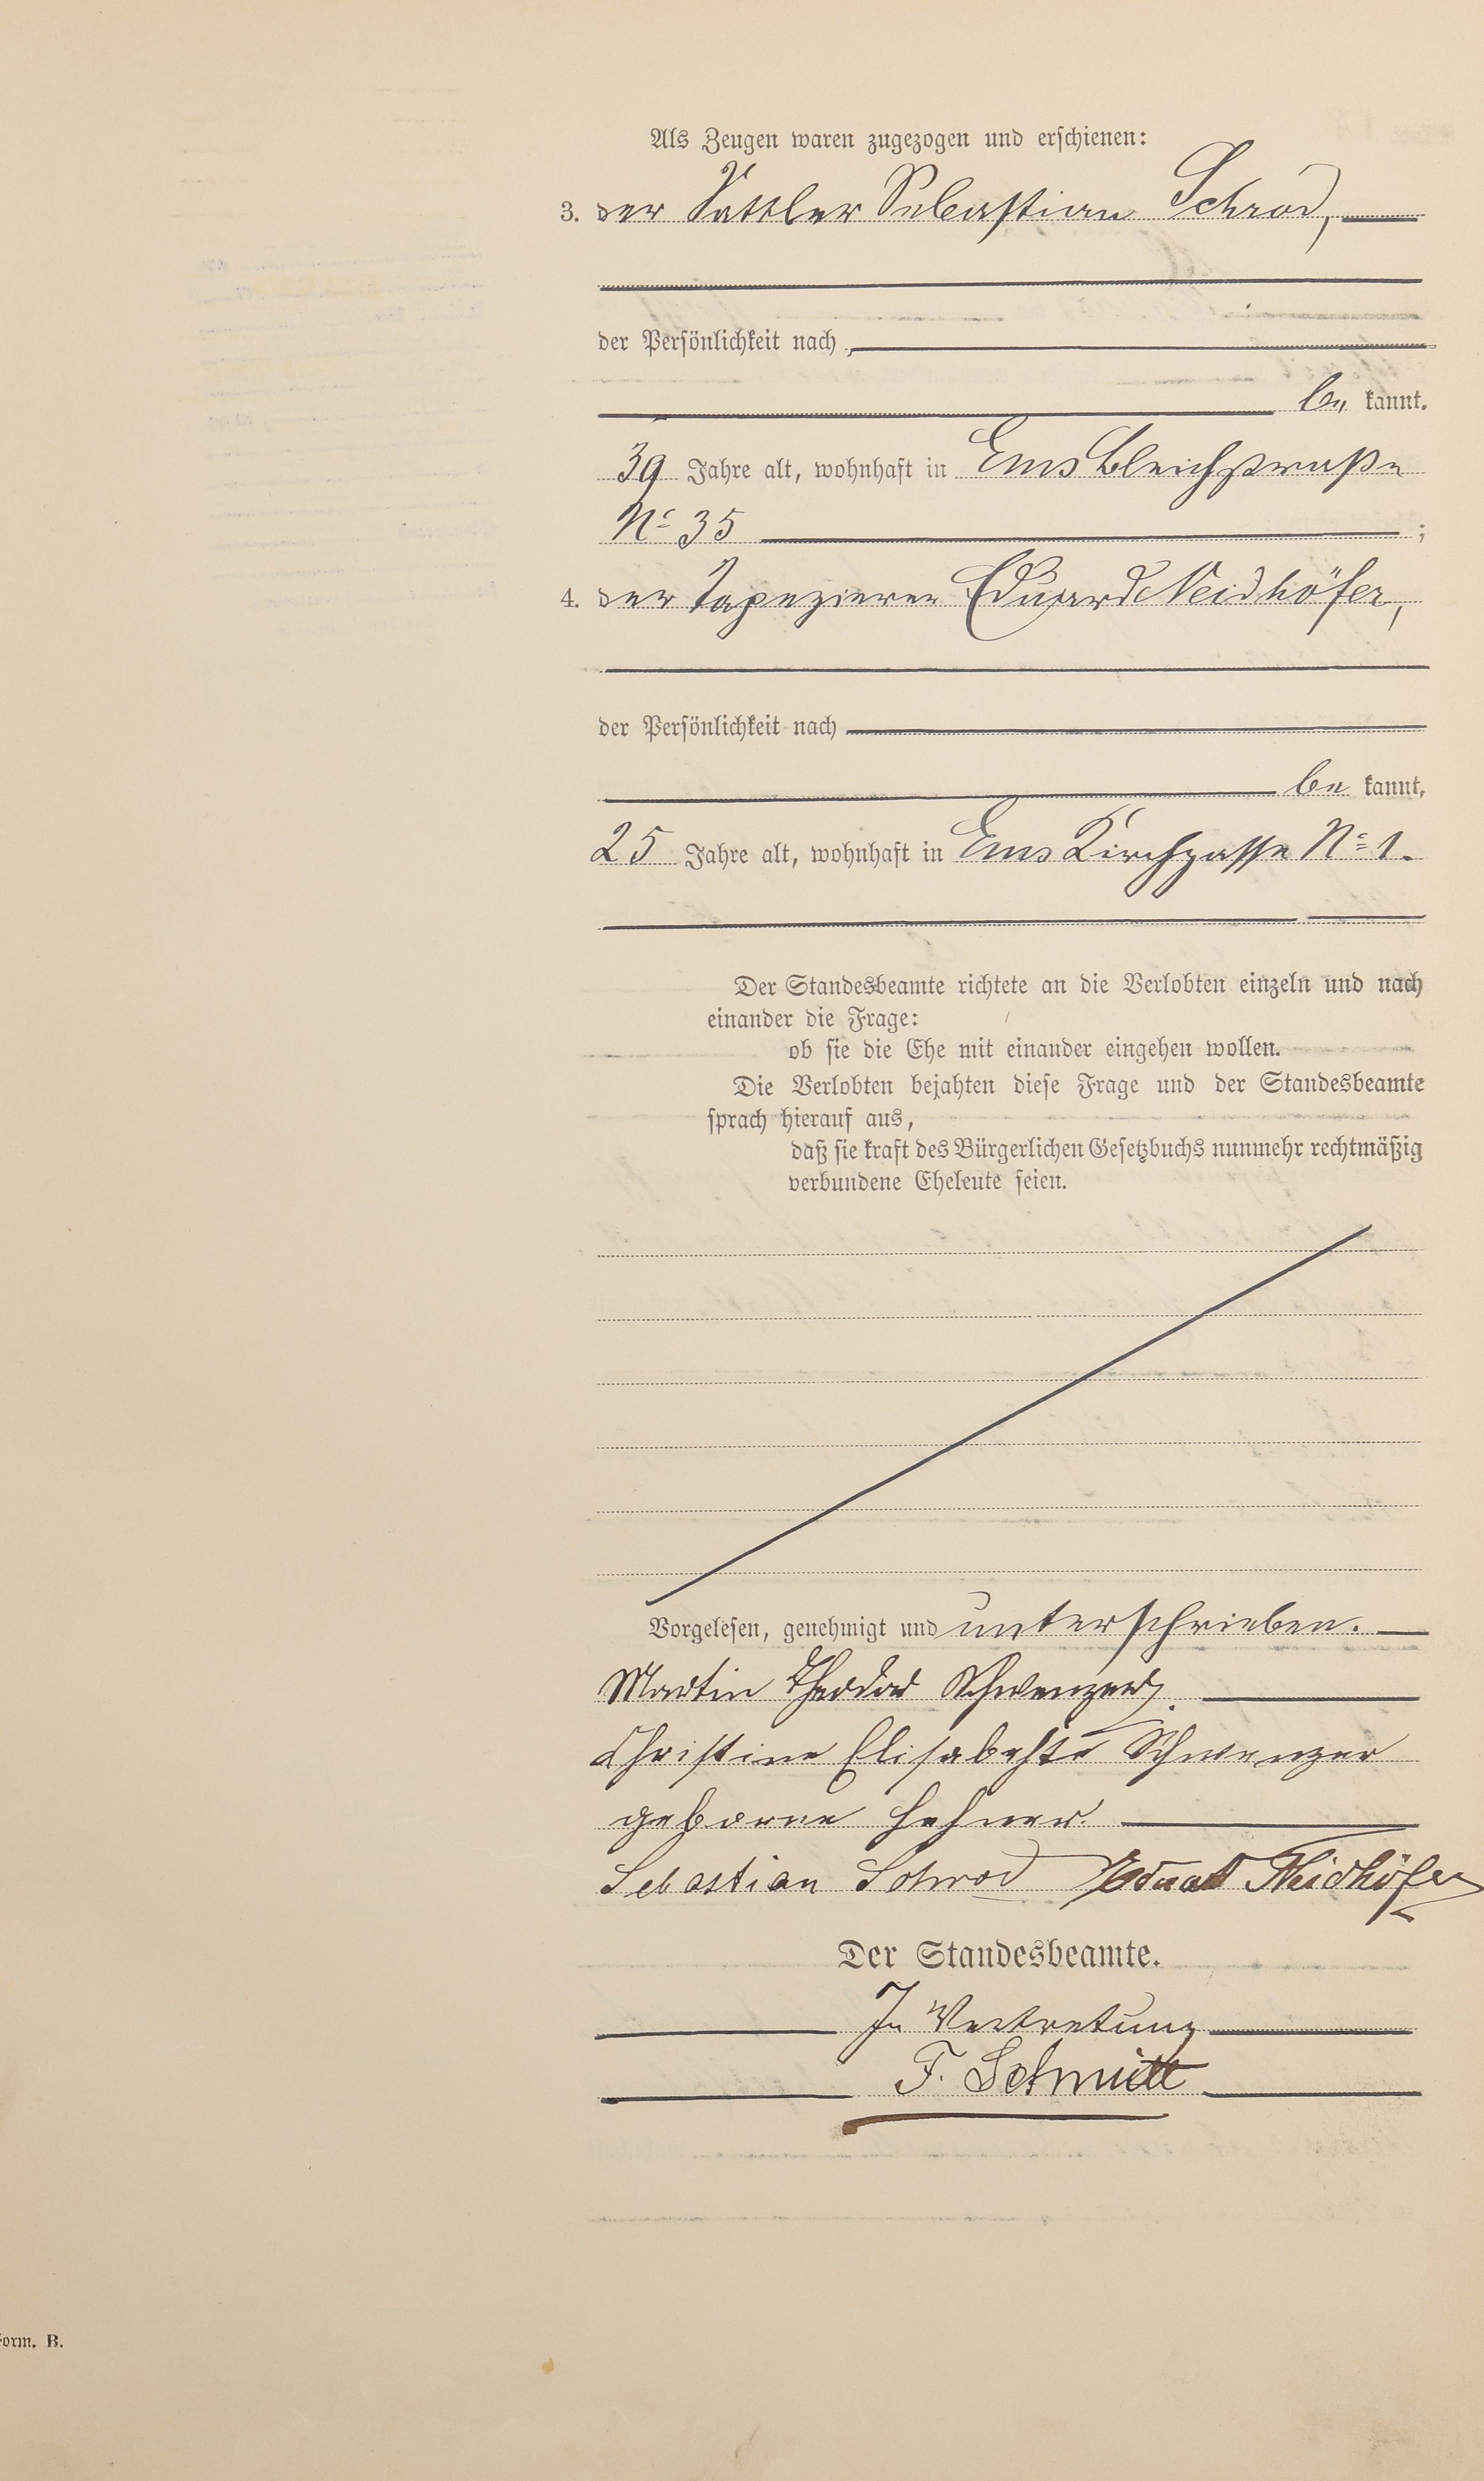 Als Zeugen waren zugezogen und erschienen:
3. der Sattler Sebastian Schrod,
der Persönlichkeit nach
be kannt,
39 Jahre alt, wohnhaft in Ems Bleichstraße
No 35 ;
4. der Tapezierer Eduard Neidhöfer,
der Persönlichkeit nach
be kannt,
25 Jahre alt, wohnhaft in Ems Kirchgasse No 1.
Der Standesbeamte richtete an die Verlobten einzeln und nach
einander die Frage:
ob sie die Ehe mit einander eingehen wollen.
Die Verlobten bejahten diese Frage und der Standesbeamte
sprach hierauf aus,
daß sie kraft des Bürgerlichen Gesetzbuchs nunmehr rechtmäßig
verbundene Eheleute seien.
Vorgelesen, genehmigt und unterschrieben.
Martin Theodor Schwenzer
Christine Elisabehte Schwenzer
geborne Hehner.
Sebastian Schrod Eduard Neidhöfer
Der Standesbeamte.
In Vertretung
F. Schmitt
Form. B.